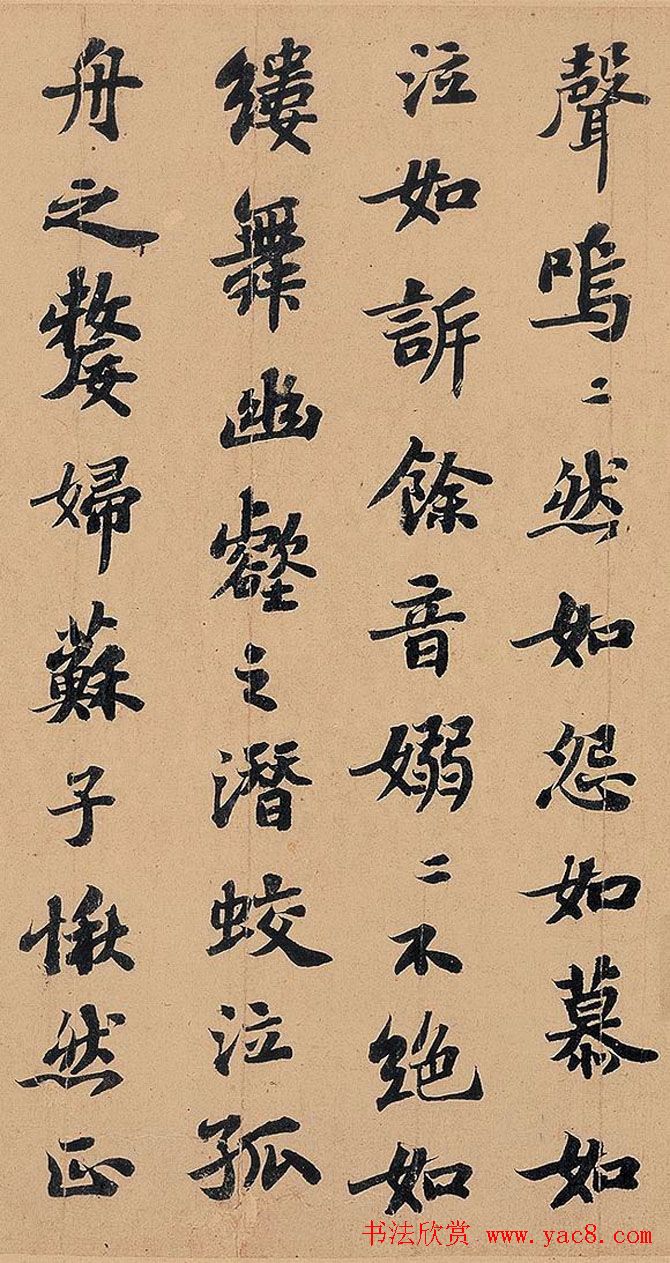 聲嗚二然如怨如慕如
泣如訴餘音嫋二不絶如
縷舞幽壑之潛蛟泣孤
舟之嫠婦蘇子愀然正
书法欣赏 www.yac8.com